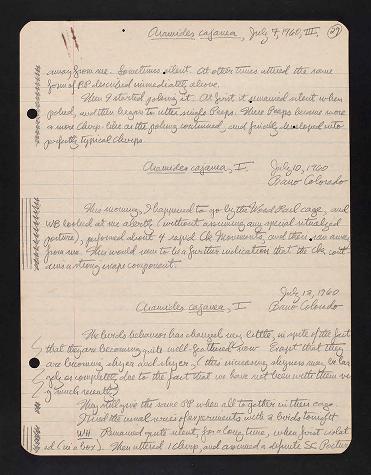 Aramides cajanea, July 7, 1960, III, (29)
away from me. Sometimes silent. At other times uttered the same
form of PP described immediately above.
Then I started poking it. At first it remained silent when
poked, and then began to utter single Peeps. These Peeps became more
& more Chirp-like as the poking continued, and finally developed into
perfectly typical Chirps.
Aramides cajanea, I. July 10, 1960
Barro Colorado
This morning, I happened to go by the Wood Rail cage, and
WB looked at me alertly (without assuming any special ritualized
posture), performed about 4 rapid Movements, and then ran away
from me. This would seem to be a further indication that the
a strong escape component.
Aramides cajanea, I July 12, 1960
Barro Colorado
The birds behavior has changed very little, in spite of the fact
that they are becoming quite well-feathered now. Except that they
are becoming shyer and shyer. (this increasing shyness may be
or completely, due to the fact that we have not been with them
much recently)
They still give the same PP when all together in their cage.
Tried the usual series of experiments with 2 birds tonight.
WH Remained quite silent, for a long time, when first
ed (in a box). Then uttered 1 Chirp, and assumed a definite SC Posture